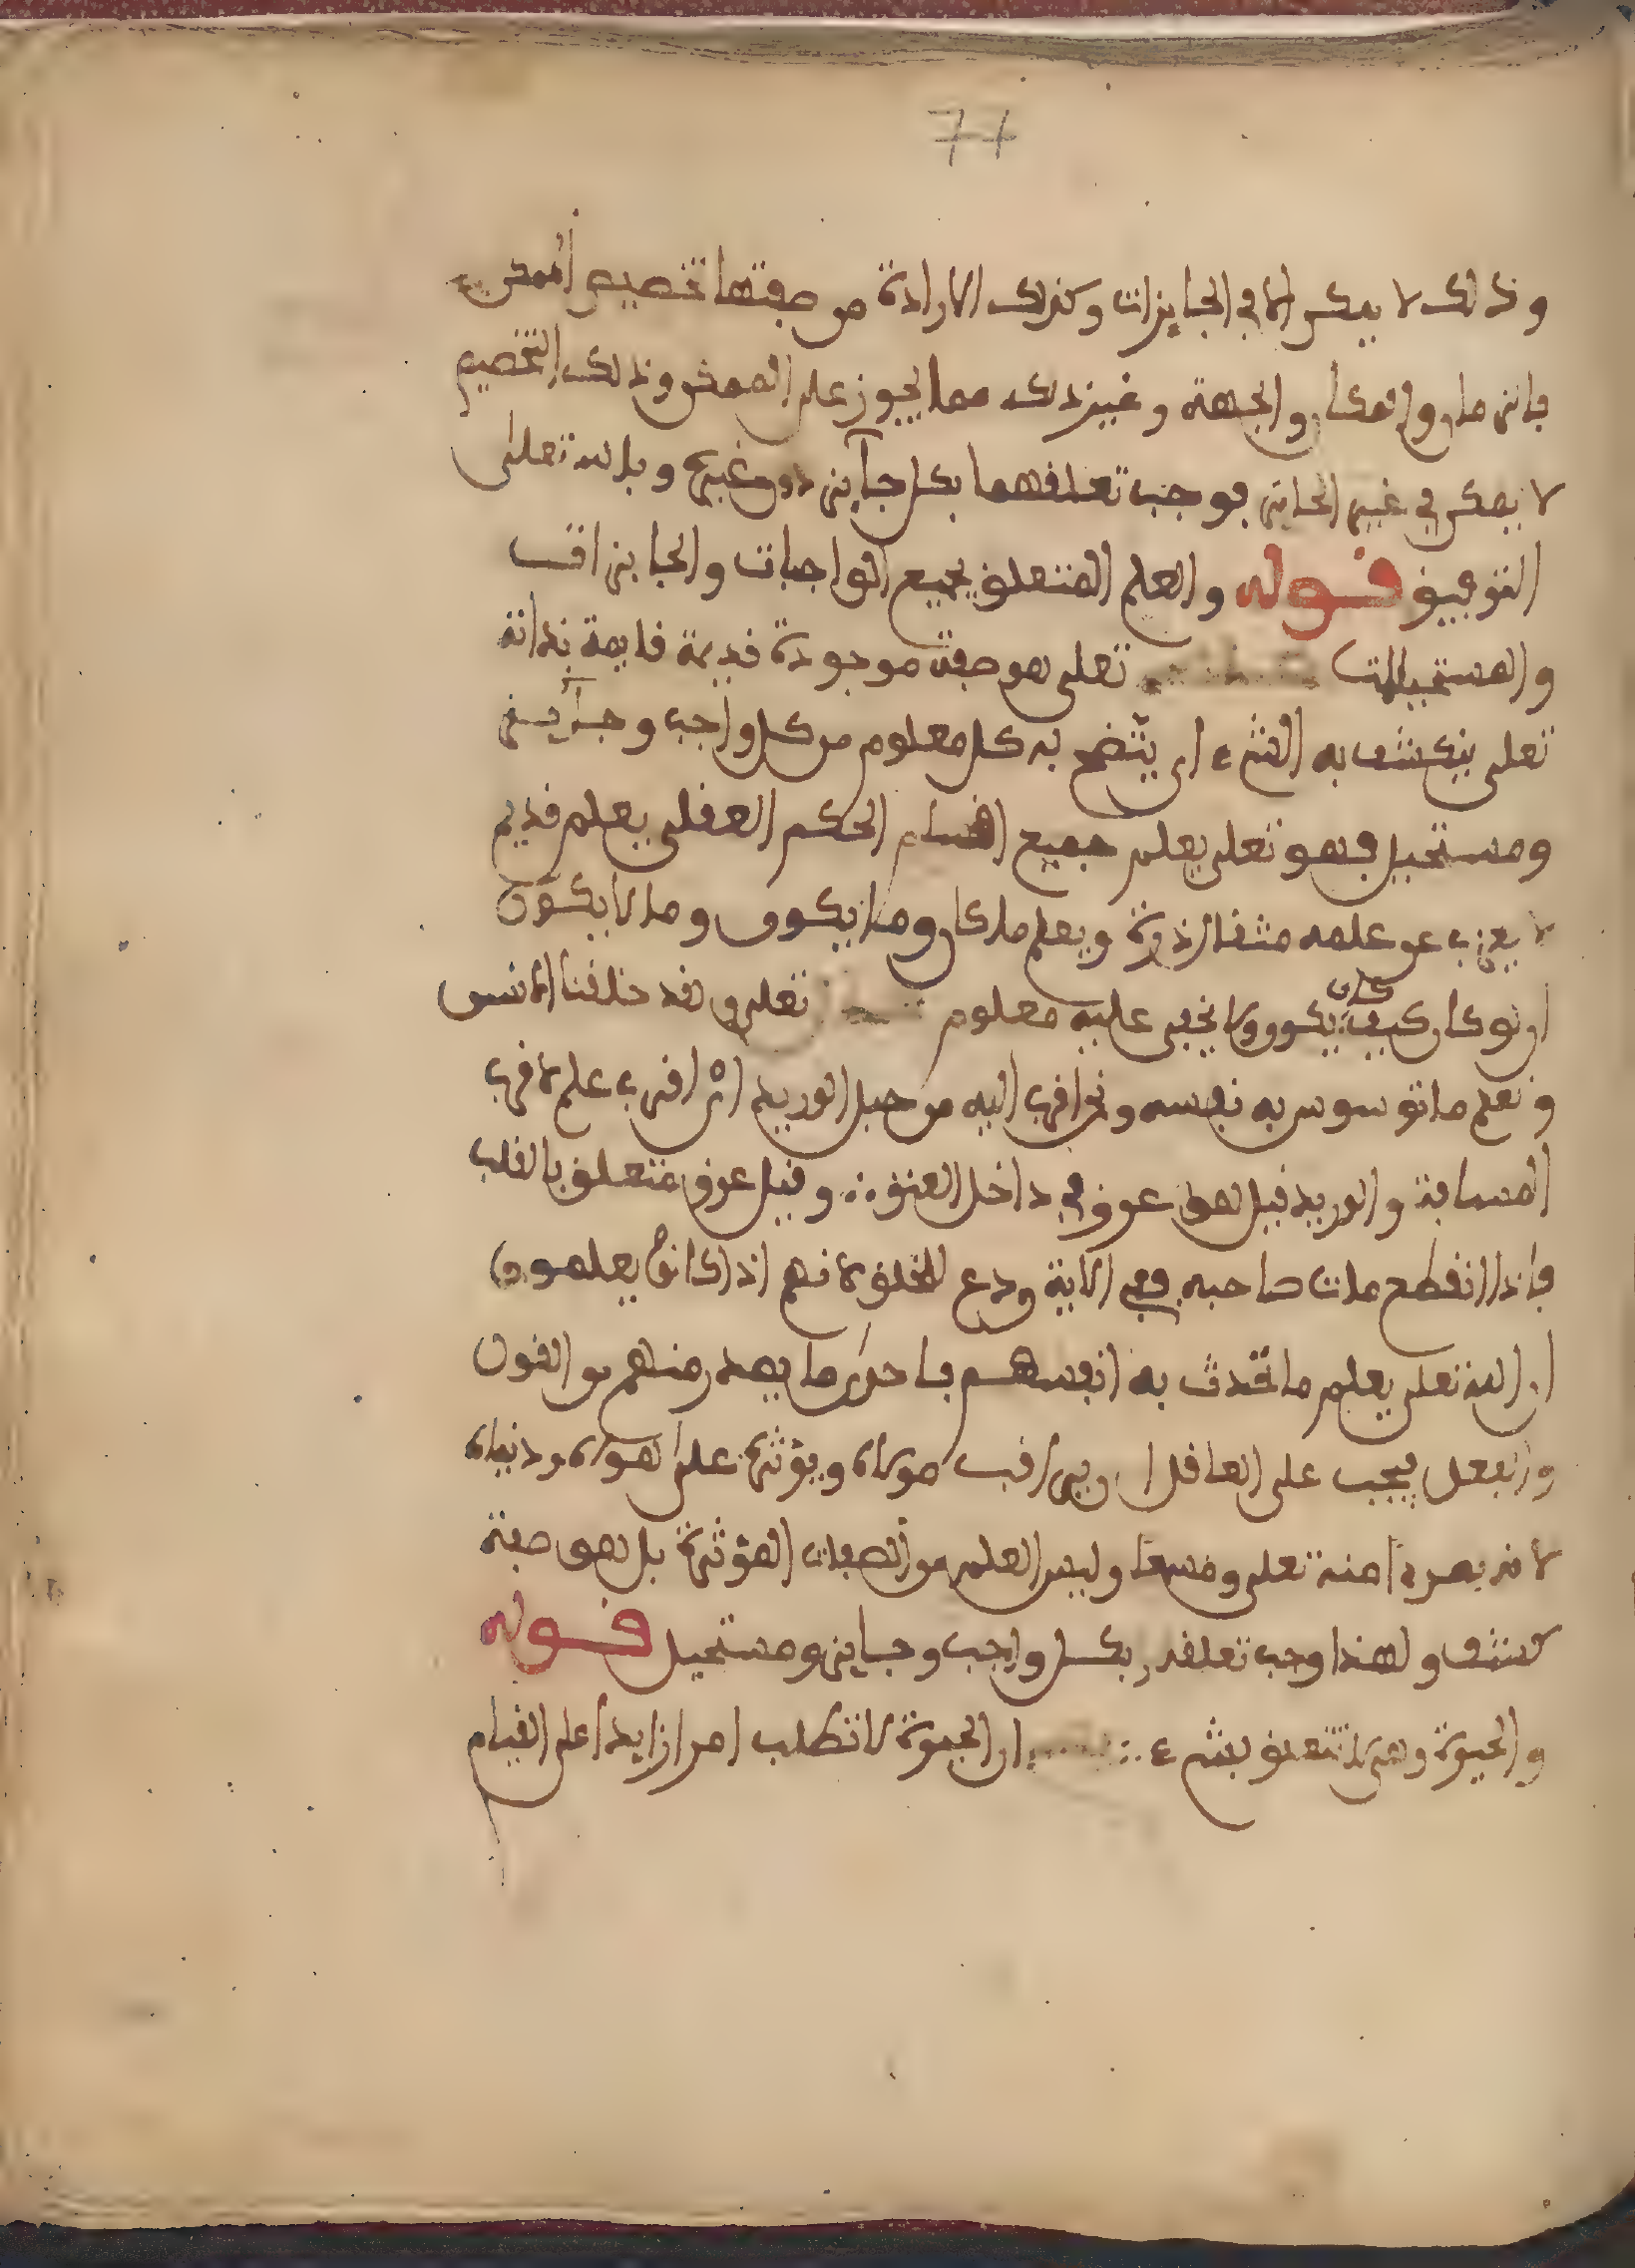 77
وذلك لا يمكن الا في الجايزات وكذلك الارادة من صفتها تخصيص الممكن
بالزمان والمكان والجهة وغير ذلك مما يجوز على الممكن وذلك التخصيص
لا يمكن في غير الجايز فوجب تعلقهما بكل جآيز دون غيره وبالله تعلى
التوفيق قوله والعلم المتعلق بجميع الواجبات والجايزات
والمستحيلات تعلى هو صفة موجودة قديمة قايمة بذاته
تعلى ينكشف به الشيء اي يتضح به كل معلوم من كل واجب وجآيز
ومستحيل فهو تعلى يعلم جميع اقسام الحكم العقلي يعلم قديم
لا يعزب عن علمه مثقال ذرة ويعلم ما كان وما يكون وما لا يكون
ان لو كان كيف كان يكون ولا يخفى عليه معلوم تعلى ولقد خلقنا الانسن
ونعلم ما توسوس به نفسه ونحن اقرب اليه من حبل الوريد اي اقرب علم لا قرب
المسافة والوريد قيل هو عرق في داخل العنق وقيل عرق متعلق بالقلب
فاذا انقطع مات صاحبه ففي الاية ردع للخلق لانهم اذا كانوا يعلمون
ان الله تعلى يعلم ما تحدث به انفسهم فاحرى ما يصدر منهم من القول
والفعل فيجب على العاقل ان يراقب مولاه ويؤثره على هواه ودنياه
لانه بمرءا منه تعلى ومسمعا وليس العلم من الصفات المؤثرة بل هو صفة
كشف ولهذا وجب تعلقه بكل واجب وجايز ومستحيل قوله
والحيوة وهي لا تتعلق بشيء ان الحيوة لا تطلب امرا زايدا على القيام